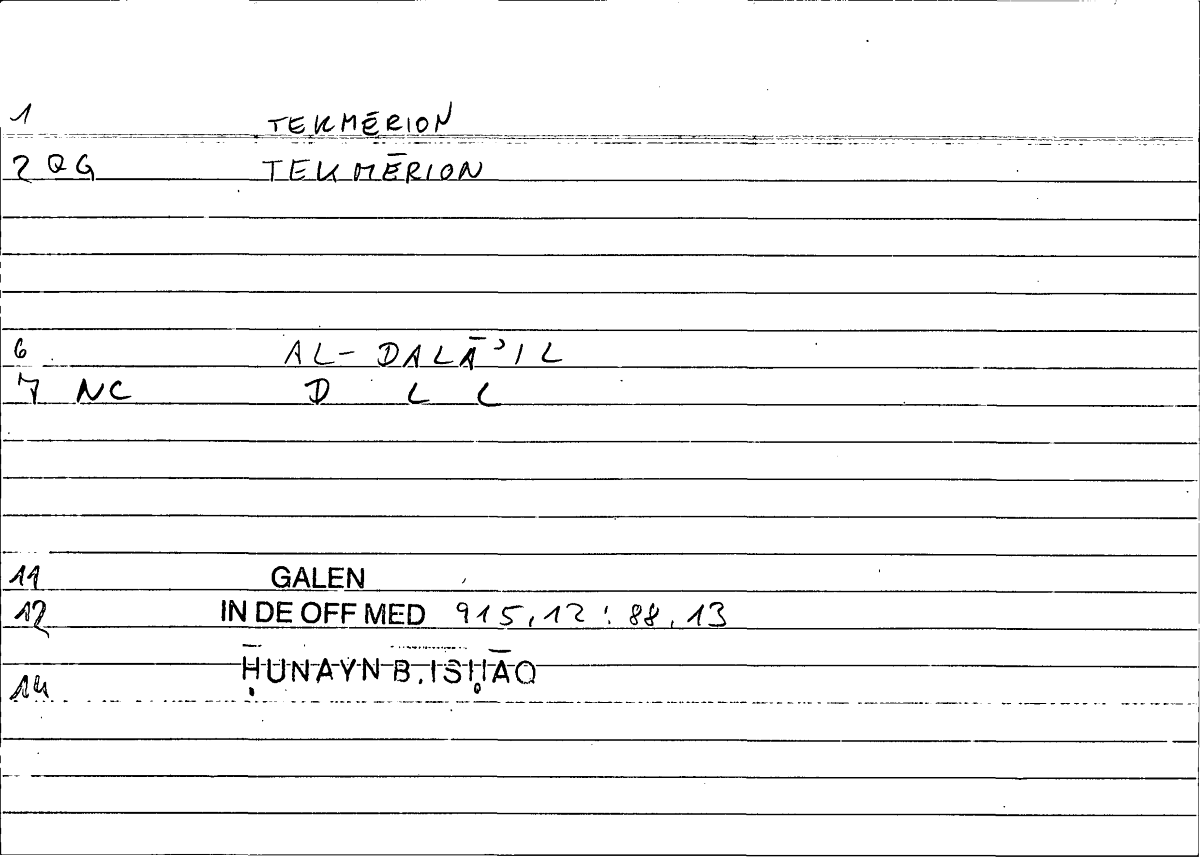 1 TEKMĒRION
2 QG TEKMĒRION
6 AL-DALĀʾIL
7 NC D L L
11 GALEN
12 IN DE OFF MED 915,12 : 88,13
14 ḤUNAYN B. ISḤĀQ